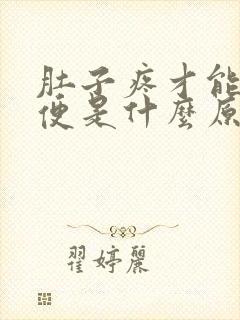 肚子疼才能
便是什麼原
翟婷麗